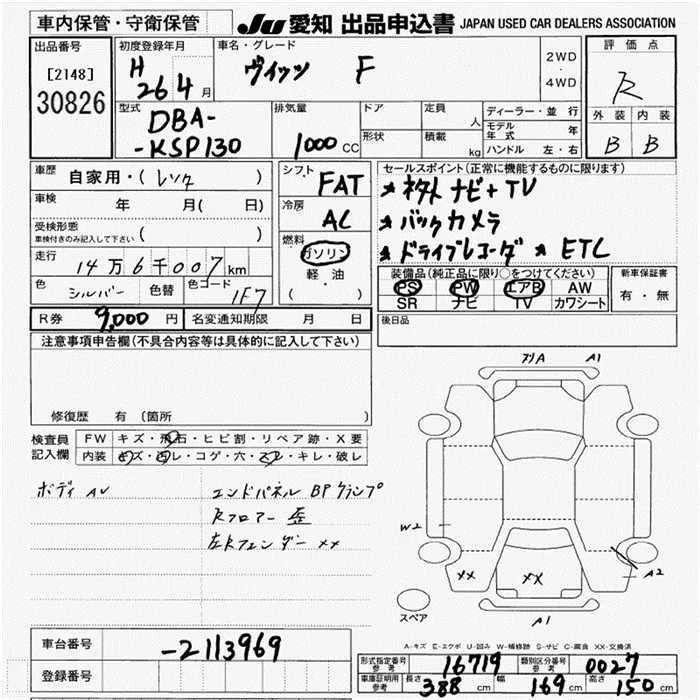 車内保管・守衛保管 JU 愛知 出品申込書 JAPAN USED CAR DEALERS ASSOCIATION
出品番号 初度登録年月 車名・グレード 2WD ・ 4WD 評価点
[2148] H 26 4 月 ヴィッツ F R
30826 型式 排気量 ドア 定員 人 ディーラー・並行 外装 内装
DBA- 形状 積載 kg モデル年式 年 B B
-KSP130 1000 CC ハンドル 左・右
車歴 自家用・( レンタ ) シフト FAT セールスポイント(正常に機能するものに限ります)
車検 年 月( 日) 冷房 AC ★ナビ+TV
受検形態 ( ) ★バックカメラ
車検付きのみ記入して下さい 燃料 ガソリン ★ドライブレコーダ ★ETC
走行 14万6千007km 軽油 装備品(純正品に限り○をつけてください) 新車保証書
色 シルバー 色替 色コード 1F7 ( ) PS PW エアB AW 有・無
SR ナビ TV カワシート
R券 9,000 円 名変通知期限 月 日 後日品
注意事項申告欄(不具合内容等は具体的に記入して下さい)
修復歴 有 (箇所
検査員 FW キズ・飛石・ヒビ割・リペア跡・X要
記入欄 内装 キズ・汚レ・コゲ・穴・スレ・キレ・破レ
ボディ AU エンドパネル BPクランプ
Rフロアー 歪
左Rフェンダー ××
A1
W2
×× ×× A2
スペア A1
A-キズ E-エクボ U-凹み W-補修跡 S-サビ C-腐食 XX-交換済
車台番号 -2113969
登録番号
形式指定番号 参考 16719 類別区分番号 参考 0027
車庫証明用 参考 長さ 388 cm 幅 169 cm 高さ 150 cm